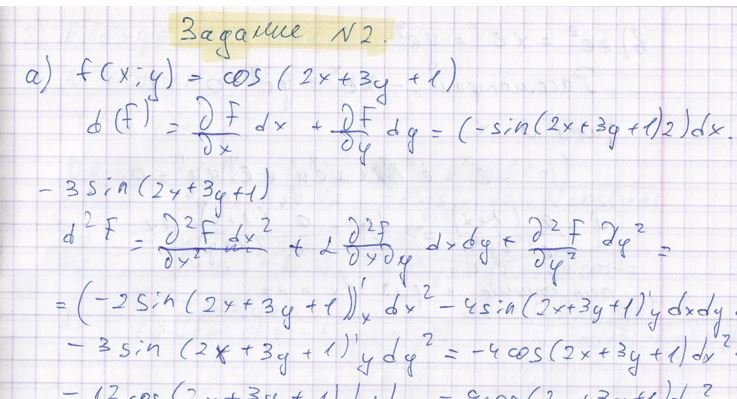 Задание N2.
а) f(x;y) = cos(2x+3y+1)
d(f) = ∂F/∂x dx + ∂F/∂y dy = (-sin(2x+3y+1)2)dx.
- 3sin(2x+3y+1)
d²F = ∂²F dx²/∂x² + 2 ∂²f/∂x∂y dxdy + ∂²F/∂y² ∂y² =
= (-2sin(2x+3y+1))'x dx² - 4sin(2x+3y+1)'y dxdy.
- 3sin(2x+3y+1)'y dy² = -4cos(2x+3y+1)dx²
- 12cos(2x+3y+1)